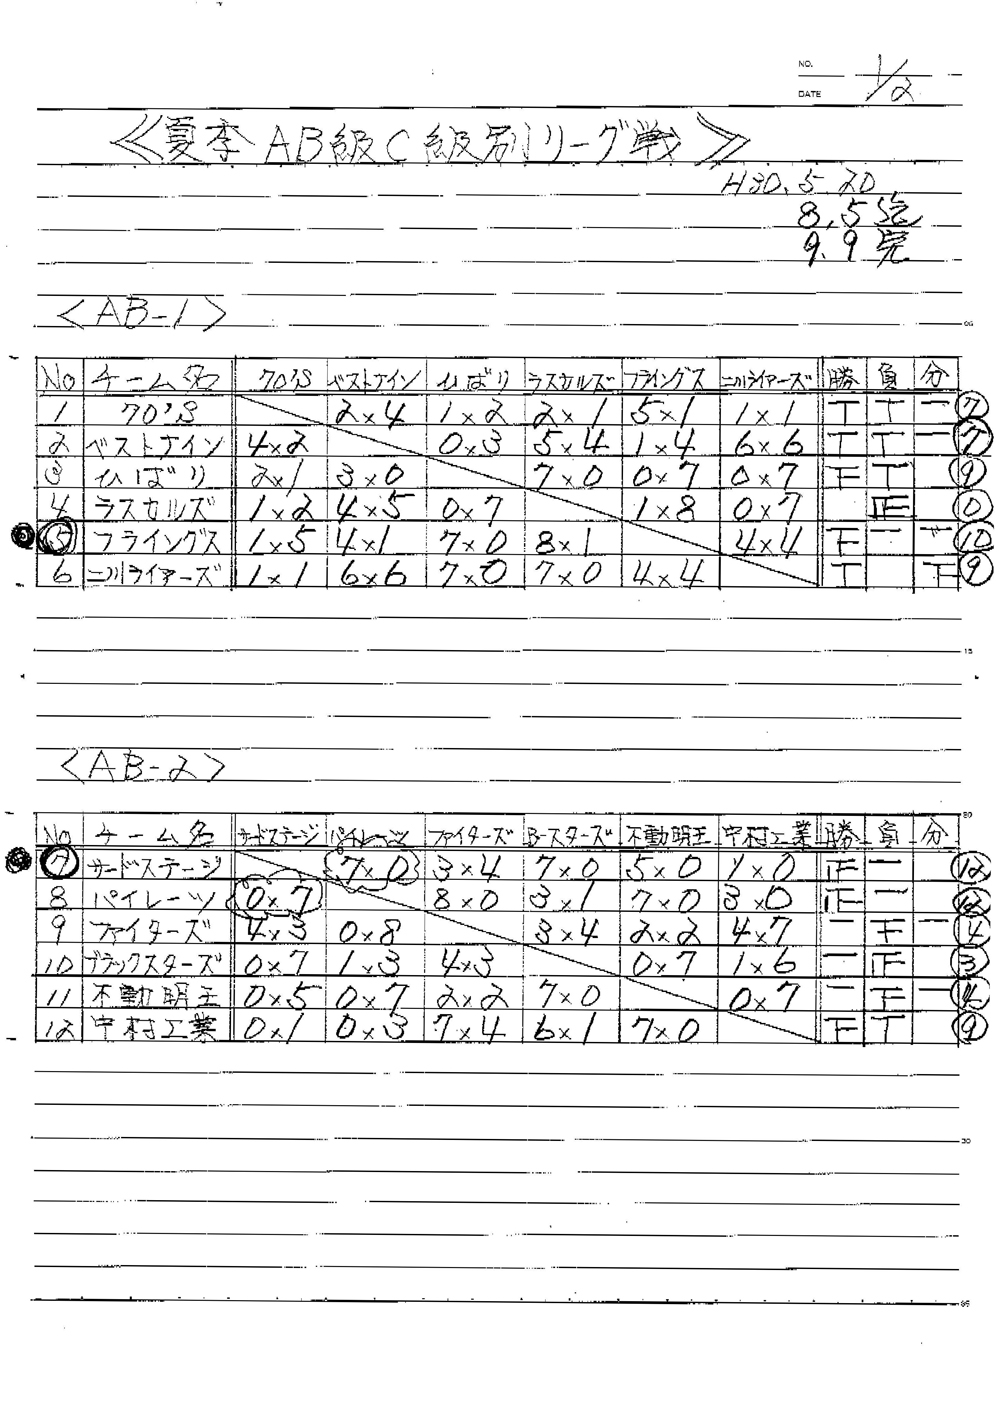 NO. 1/2
DATE
≪夏季AB級C級別リーグ戦≫
H30.5.20
8.5迄
9.9完
<AB-1>
No チーム名 70'S ベストナイン ひばり ラスカルズ フライングス 二川ライヤーズ 勝 負 分
1 70'S 2×4 1×2 2×1 5×1 1×1 T T 一 ⑦
2 ベストナイン 4×2 0×3 5×4 1×4 6×6 T T 一 ⑦
3 ひばり 2×1 3×0 7×0 0×7 0×7 下 T ⑨
4 ラスカルズ 1×2 4×5 0×7 1×8 0×7 正 ⓪
⑤ フライングス 1×5 4×1 7×0 8×1 4×4 下 一 一 ⑩
6 二川ライヤーズ 1×1 6×6 7×0 7×0 4×4 T 下 ⑨
<AB-2>
No チーム名 サードステージ パイレーツ ファイターズ B-スターズ 不動明王 中村工業 勝 負 分
⑦ サードステージ 7×0 3×4 7×0 5×0 1×0 正 一 ⑫
8 パイレーツ 0×7 8×0 3×1 7×0 3×0 正 一 ⑫
9 ファイターズ 4×3 0×8 3×4 2×2 4×7 一 下 一 ④
10 ブラックスターズ 0×7 1×3 4×3 0×7 1×6 一 正 ③
11 不動明王 0×5 0×7 2×2 7×0 0×7 一 下 一 ④
12 中村工業 0×1 0×3 7×4 6×1 7×0 下 T ⑨